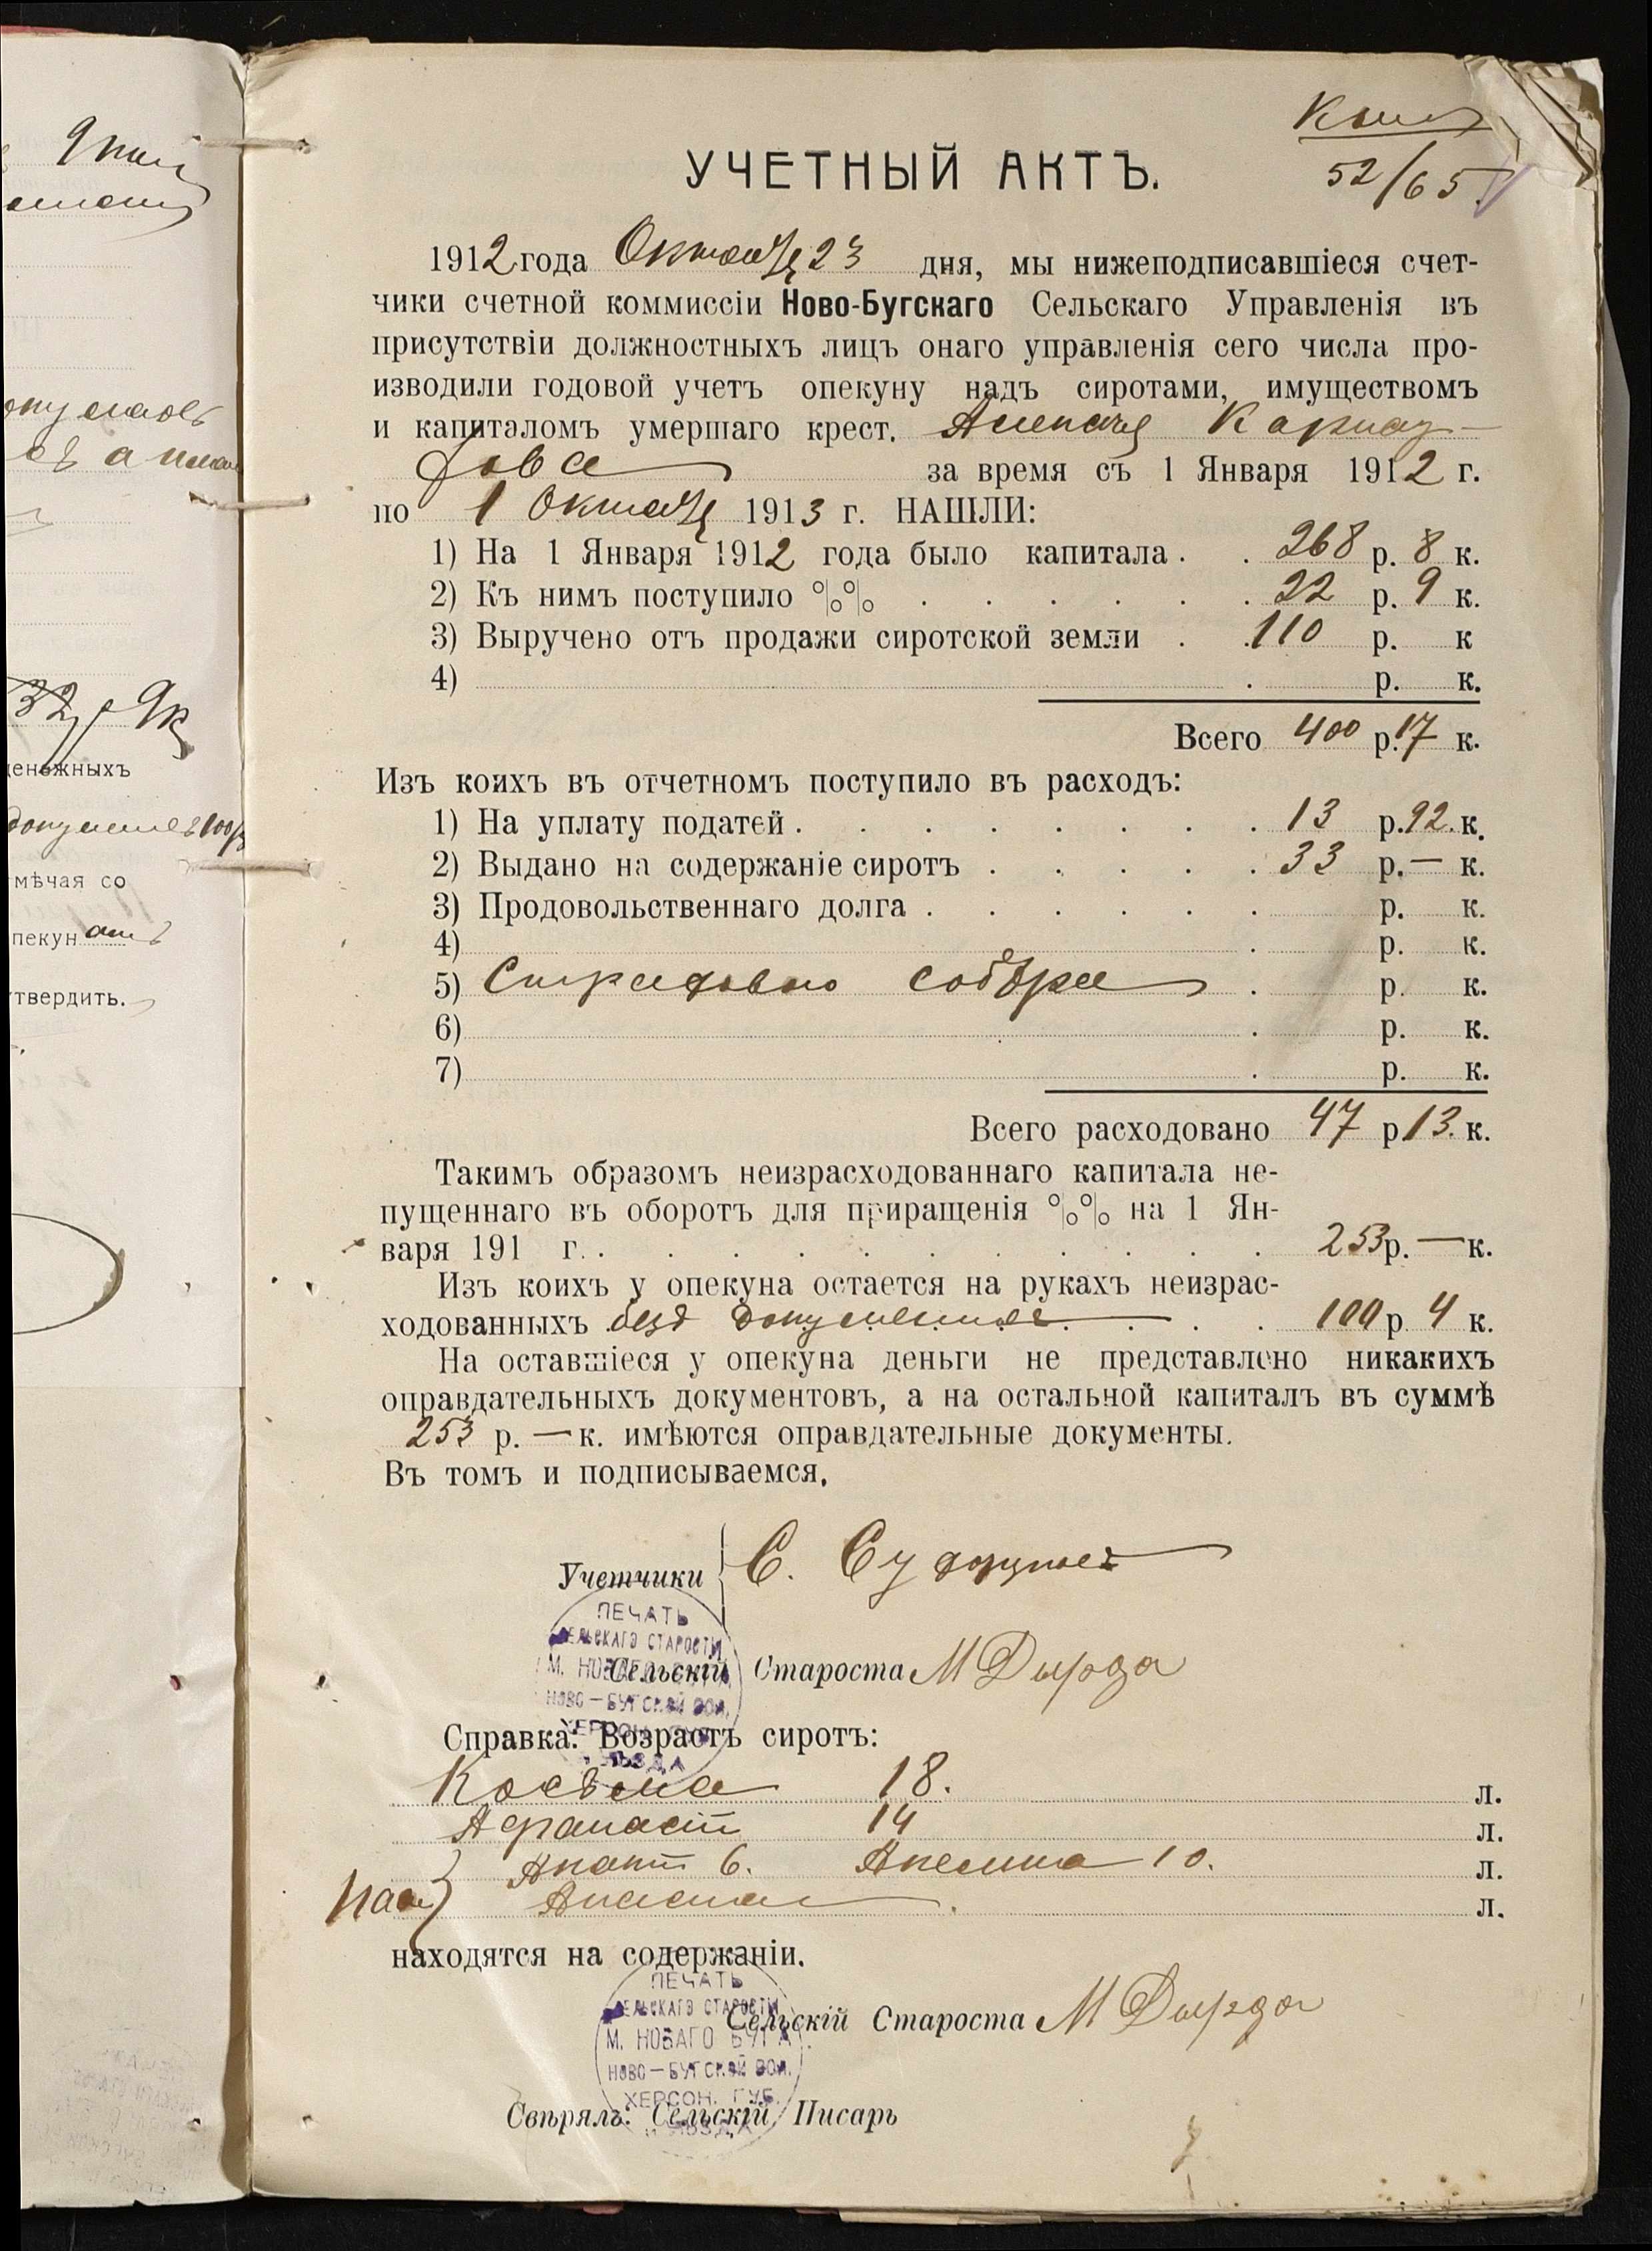 9 коп
52/65.
УЧЕТНЫЙ АКТЪ.
1912 года Октября 23 дня, мы нижеподписавшіеся счет-
чики счетной коммиссіи Ново-Бугскаго Сельскаго Управленія въ
присутствіи должностныхъ лицъ онаго управленія сего числа про-
изводили годовой учетъ опекуну надъ сиротами, имуществомъ
и капиталомъ умершаго крест.
за время съ 1 Января 1912 г.
по 1 Октября 1913 г. НАШЛИ:
1) На 1 Января 1912 года было капитала . . 268 р. 8 к.
2) Къ нимъ поступило %% . . . . . . 22 р. 9 к.
3) Выручено отъ продажи сиротской земли . . 110 р. к
4) . р. к.
Всего 400 р. 17 к.
Изъ коихъ въ отчетномъ поступило въ расходъ:
1) На уплату податей . . . . . . . . 13 р. 92. к.
2) Выдано на содержаніе сиротъ . . . . . 33 р. — к.
3) Продовольственнаго долга . . . . . . р. к.
4) . р. к.
5) Страховаго сбора . р. к.
6) . р. к.
7) . р. к.
Всего расходовано 47 р 13. к.
Такимъ образомъ неизрасходованнаго капитала не-
пущеннаго въ оборотъ для приращенія %% на 1 Ян-
варя 191 г. . . . . . . . . . . . 253 р. — к.
Изъ коихъ у опекуна остается на рукахъ неизрас-
ходованныхъ безъ документа . . . 100 р. 4 к.
На оставшіеся у опекуна деньги не представлено никакихъ
оправдательныхъ документовъ, а на остальной капиталъ въ суммѣ
253 р. — к. имѣются оправдательные документы.
Въ томъ и подписываемся.
Учетчики С.
Сельскій Староста М Дырда
ПЕЧАТЬ
СЕЛЬСКАГО СТАРОСТЫ
М. НОВАГО БУГА
НОВО-БУГСКОЙ ВОЛ.
ХЕРСОН. ГУБ.
И УѢЗДА
Справка: Возрастъ сиротъ:
Косьма 18. л.
Афанасій 14 л.
6. 10. л.
л.
находятся на содержаніи.
Сельскій Староста М Дырда
ПЕЧАТЬ
СЕЛЬСКАГО СТАРОСТЫ
М. НОВАГО БУГА
НОВО-БУГСКОЙ ВОЛ.
ХЕРСОН. ГУБ.
И УѢЗДА
Свѣрялъ: Сельскій Писарь
32 р 9 к
денежныхъ
мѣчая со
пекун
твердить.